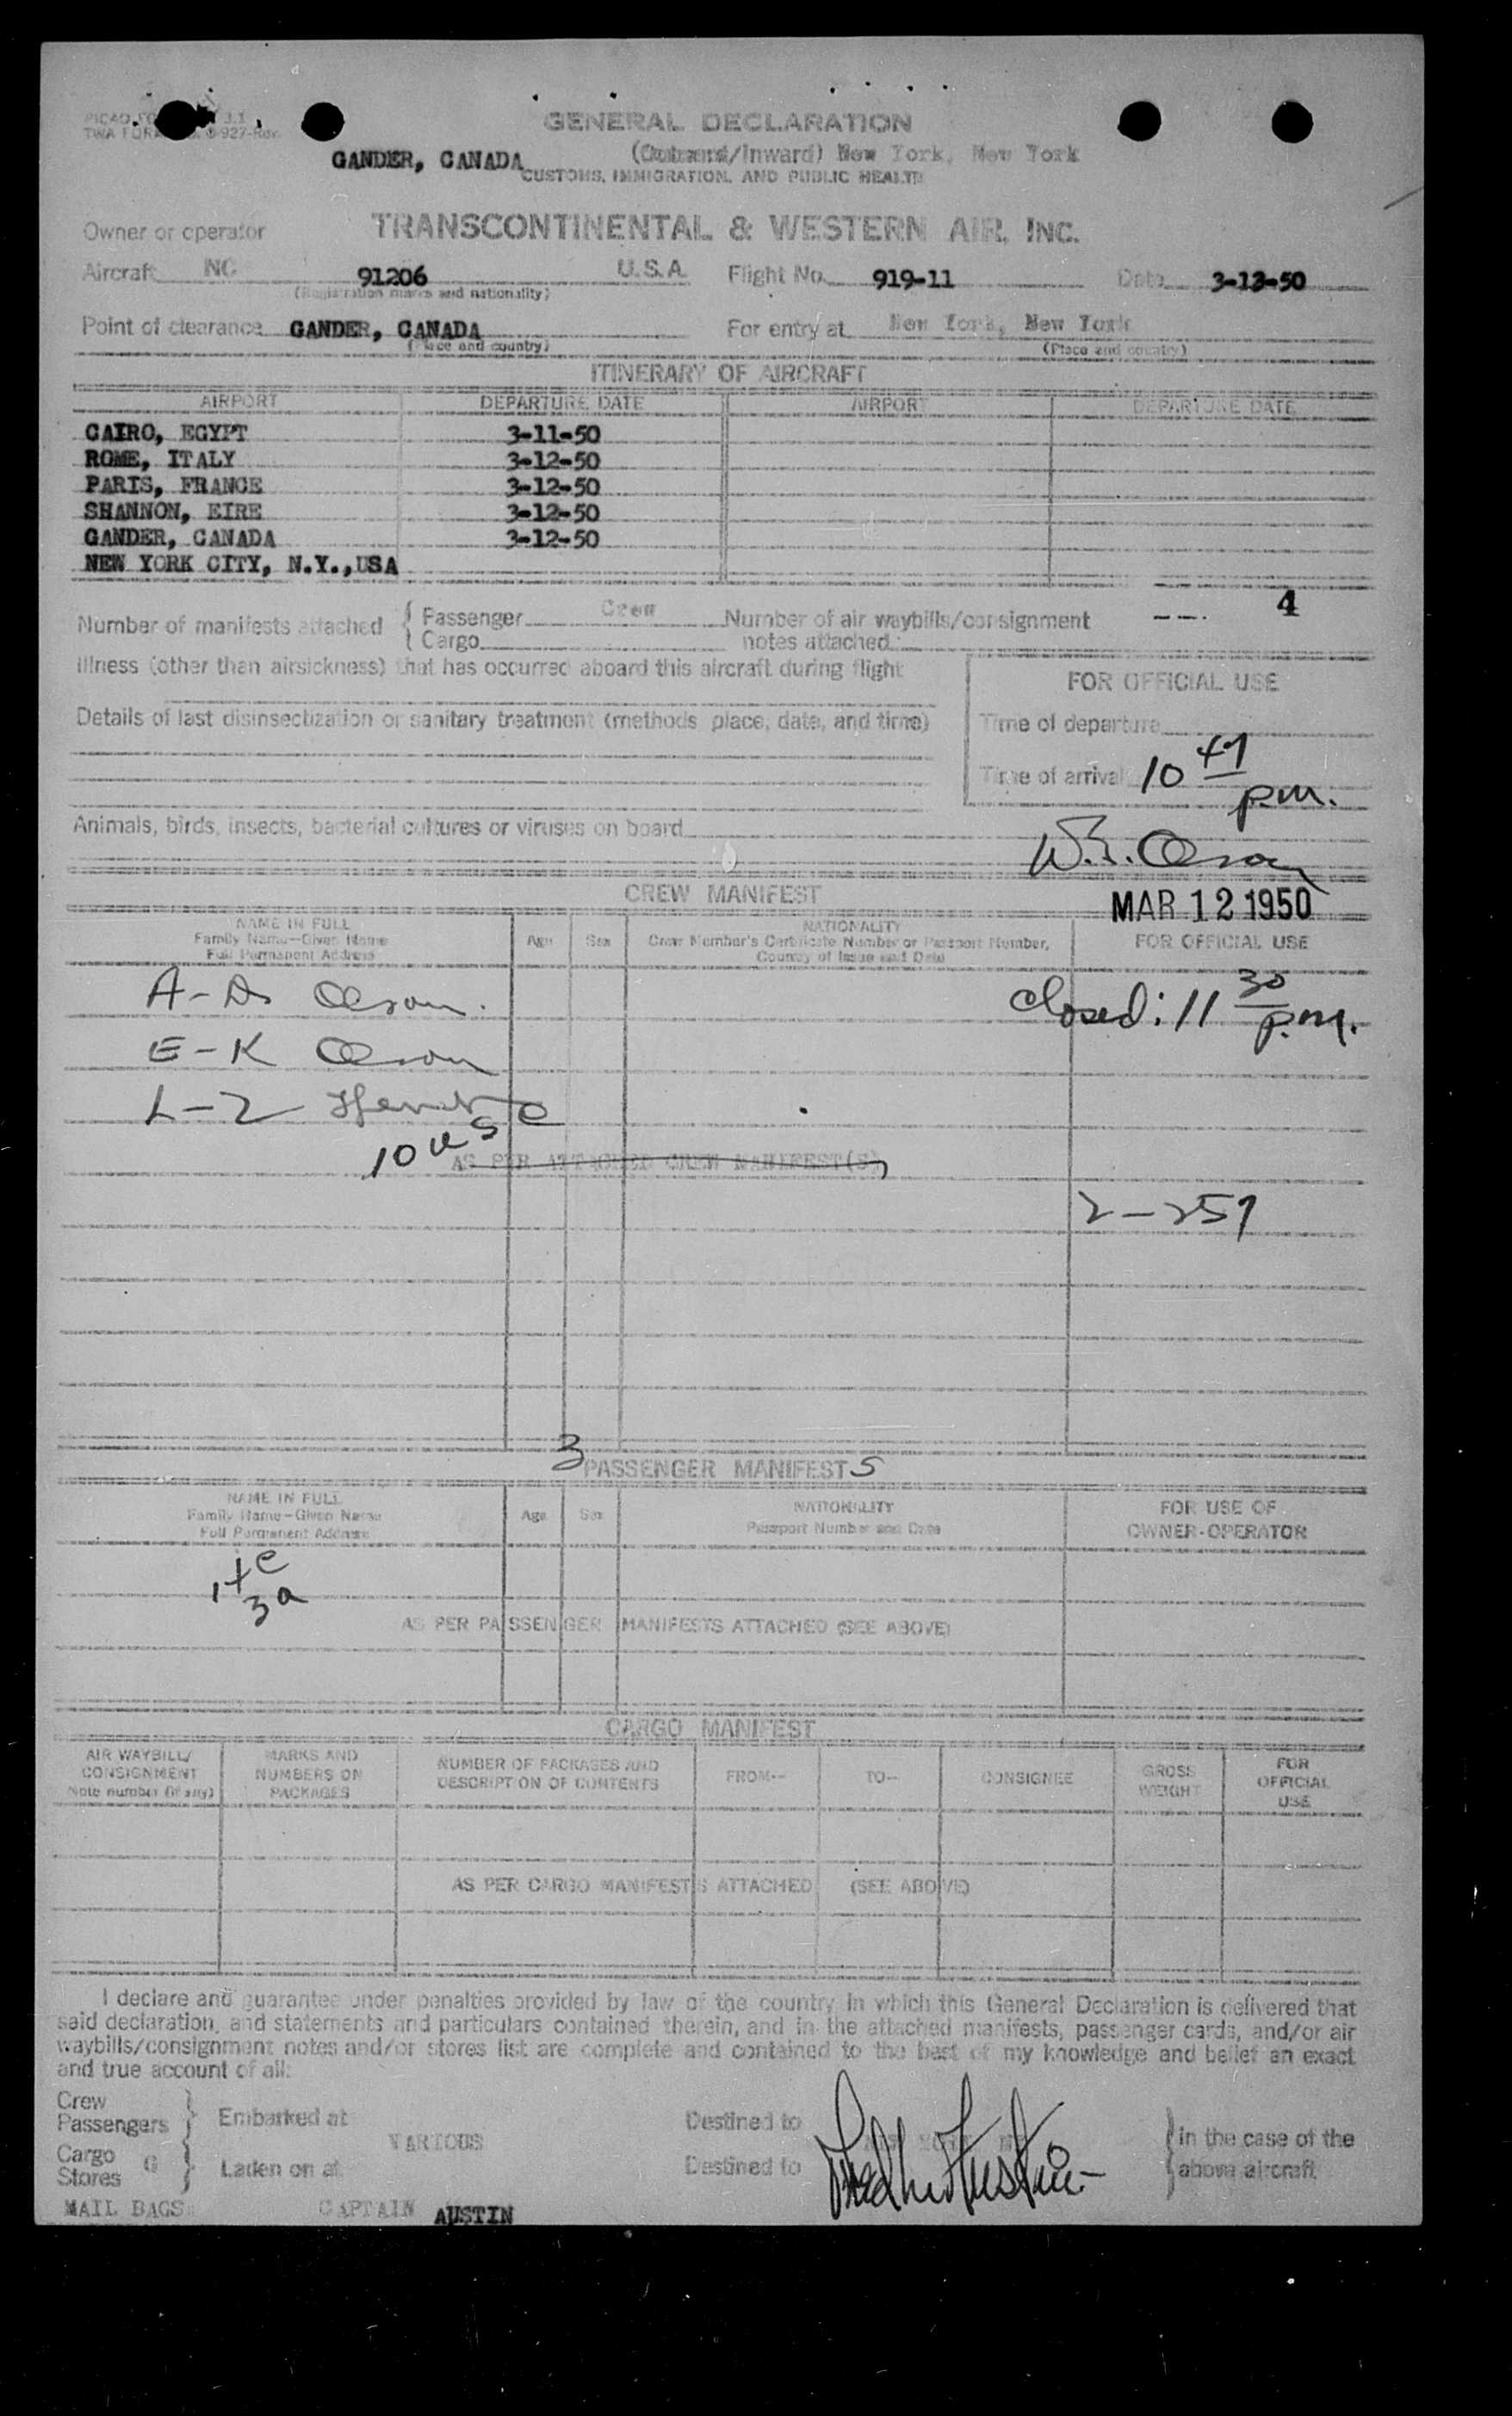 GENERAL DECLARATION
(Outward/Inward) New York, New York
GANDER, CANADA
CUSTOMS, IMMIGRATION, AND PUBLIC HEALTH
Owner or operator TRANSCONTINENTAL & WESTERN AIR, INC.
Aircraft NC 91206 U.S.A. Flight No. 919-11 Date 3-13-50
(Registration marks and nationality)
Point of clearance GANDER, CANADA For entry at New York, New York
(Place and country) (Place and country)
ITINERARY OF AIRCRAFT
AIRPORT DEPARTURE DATE AIRPORT DEPARTURE DATE
CAIRO, EGYPT 3-11-50
ROME, ITALY 3-12-50
PARIS, FRANCE 3-12-50
SHANNON, EIRE 3-12-50
GANDER, CANADA 3-12-50
NEW YORK CITY, N.Y.,USA
4
Number of manifests attached { Passenger Crew Number of air waybills/consignment ---
Cargo notes attached
Illness (other than airsickness) that has occurred aboard this aircraft during flight
FOR OFFICIAL USE
Details of last disinsectization or sanitary treatment (methods place, date, and time)
Time of departure
Time of arrival 10 47 p.m.
Animals, birds, insects, bacterial cultures or viruses on board
CREW MANIFEST
MAR 12 1950
NAME IN FULL
Family Name—Given Name
Full Permanent Address
Age Sex
NATIONALITY
Crew Member's Certificate Number or Passport Number,
Country of Issue and Date
FOR OFFICIAL USE
A-D Olson
Closed: 11 30 p.m.
E-K Olson
L-Z
10 usc
AS PER ATTACHED CREW MANIFEST(S)
2-257
3 PASSENGER MANIFESTS
NAME IN FULL
Family Name—Given Name
Full Permanent Address
Age Sex
NATIONALITY
Passport Number and Date
FOR USE OF
OWNER-OPERATOR
3a
AS PER PASSENGER MANIFESTS ATTACHED (SEE ABOVE)
CARGO MANIFEST
AIR WAYBILL/
CONSIGNMENT
Note number (if any)
MARKS AND
NUMBERS ON
PACKAGES
NUMBER OF PACKAGES AND
DESCRIPTION OF CONTENTS
FROM— TO— CONSIGNEE
GROSS
WEIGHT
FOR
OFFICIAL
USE
AS PER CARGO MANIFESTS ATTACHED (SEE ABOVE)
I declare and guarantee under penalties provided by law of the country in which this General Declaration is delivered that
said declaration, and statements and particulars contained therein, and in the attached manifests, passenger cards, and/or air
waybills/consignment notes and/or stores list are complete and contained to the best of my knowledge and belief an exact
and true account of all:
Crew
Passengers } Embarked at Destined to
VARIOUS
In the case of the
above aircraft
Cargo
Stores } Laden on at Destined to
MAIL BAGS CAPTAIN AUSTIN